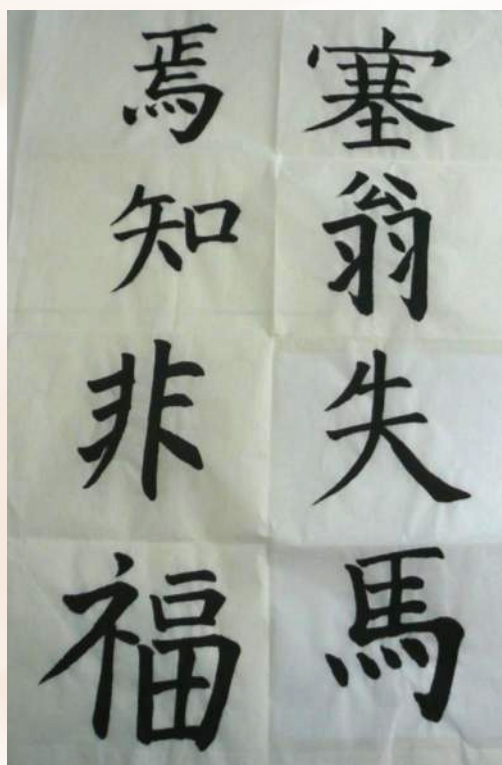 塞翁失馬
焉知非福